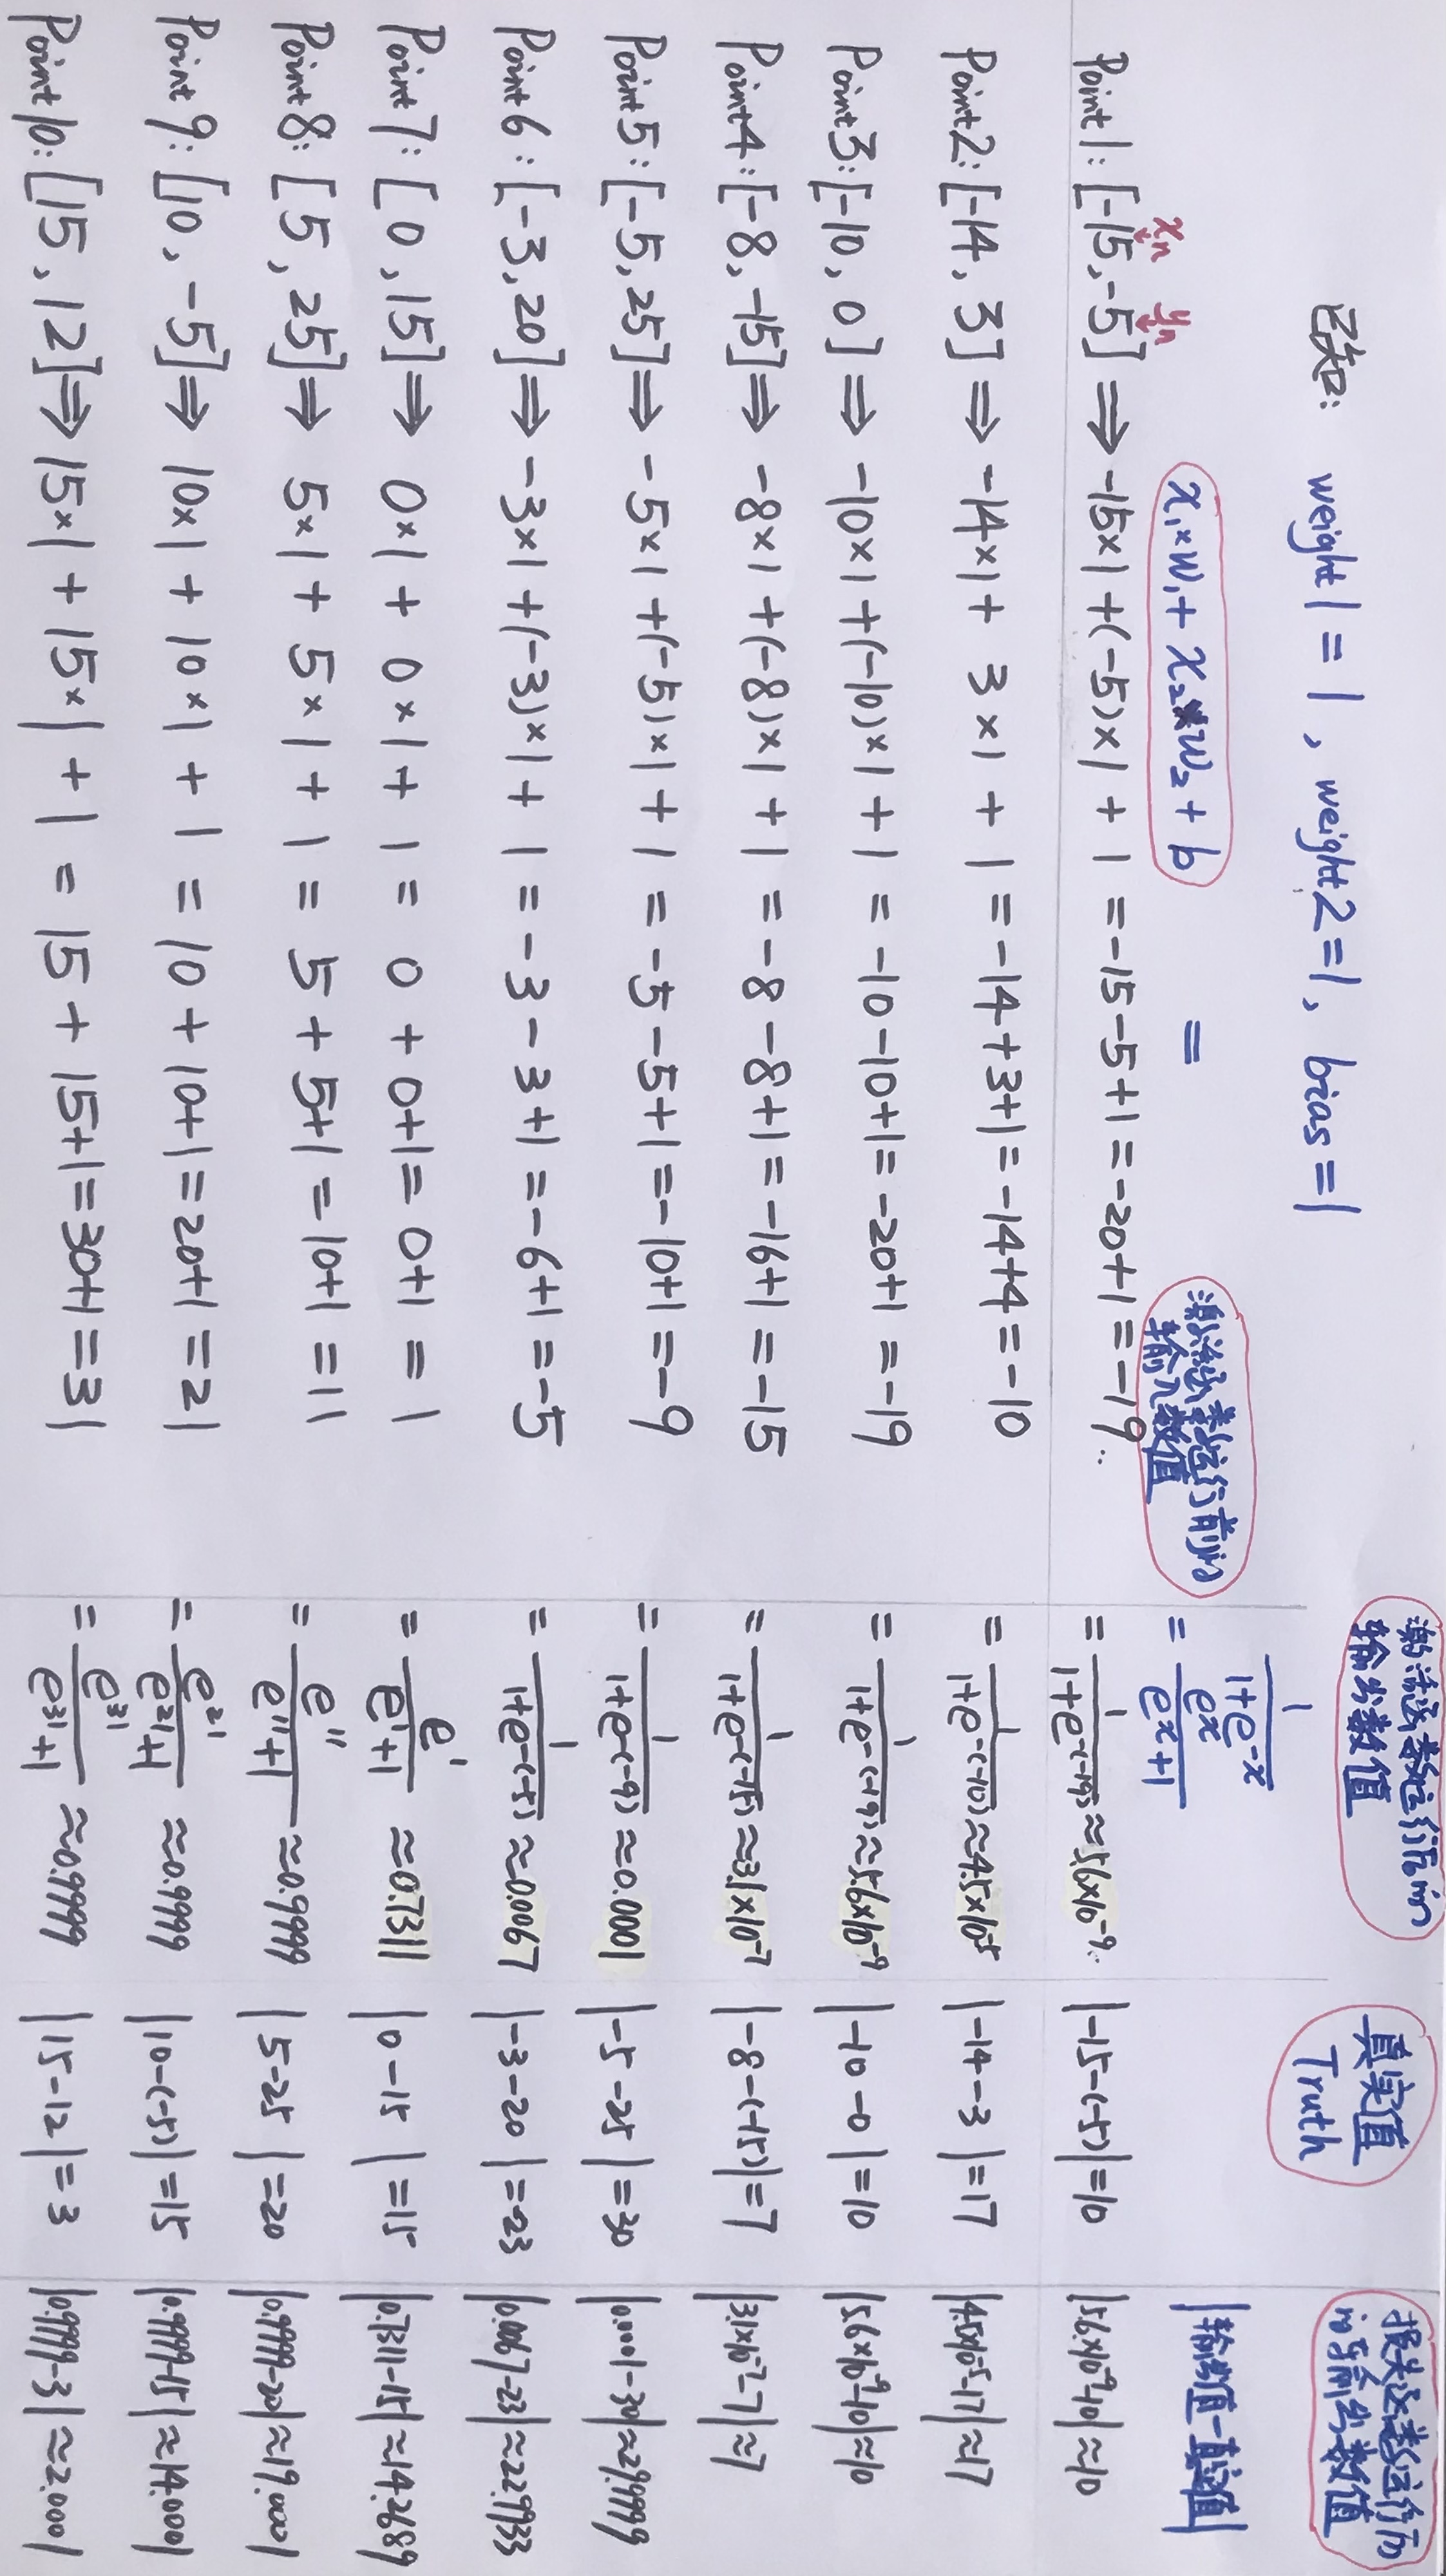 激活函数运行后的
输出数值
真实值
Truth
损失函数运行后
的输出数值
已知: weight1 = 1, weight2=1, bias=1
1/(1+e^-x)
xn yn
x₁×w₁+ x₂×w₂ + b = 激活函数运行前的
输入数值
= e^x/(e^x+1)
|输出值-真实值|
Point1: [-15,-5] ⟹ -15×1 +(-5)×1 + 1 = -15-5+1 = -20+1 = -19.. = 1/(1+e^-(-19)) ≈5.6×10^-9.. |-15-(-5)|=10 |5.6×10^-9-10|≈10
Point2: [-14, 3] ⟹ -14×1 + 3×1 + 1 = -14+3+1= -14+4 = -10 = 1/(1+e^-(-10)) ≈4.5×10^-5 |-14-3|=17 |4.5×10^-5-17|≈17
Point3: [-10, 0] ⟹ -10×1 +(-10)×1 + 1 = -10-10+1= -20+1 =-19 = 1/(1+e^-(-19)) ≈5.6×10^-9 |-10-0|=10 |5.6×10^-9-10|≈10
Point4: [-8, -15] ⟹ -8×1 +(-8)×1 + 1 = -8-8+1 = -16+1 = -15 = 1/(1+e^-(-15)) ≈3.1×10^-7 |-8-(-15)|=7 |3.1×10^-7-7|≈7
Point5: [-5, 25] ⟹ -5×1 +(-5)×1 + 1 = -5-5+1 =-10+1 =-9 = 1/(1+e^-(-9)) ≈0.0001 |-5-25|=30 |0.0001-30|≈29.9999
Point6: [-3, 20] ⟹ -3×1 +(-3)×1 + 1 = -3-3+1 =-6+1 =-5 = 1/(1+e^-(-5)) ≈0.0067 |-3-20|=23 |0.0067-23|≈22.9933
Point7: [0, 15] ⟹ 0×1 + 0×1 + 1 = 0 + 0+1= 0+1 = 1 = e^1/(e^1+1) ≈0.7311 |0-15|=15 |0.7311-15|≈14.2689
Point8: [5, 25] ⟹ 5×1 + 5×1 + 1 = 5 + 5+1 = 10+1 =11 = e^11/(e^11+1) ≈0.9999 |5-25|=20 |0.9999-20|≈19.0001
Point9: [10, -5] ⟹ 10×1 + 10×1 + 1 = 10 + 10+1=20+1 =21 = e^21/(e^21+1) ≈0.9999 |10-(-5)|=15 |0.9999-15|≈14.0001
Point10: [15, 12] ⟹ 15×1 + 15×1 + 1 = 15 + 15+1=30+1 =31 = e^31/(e^31+1) ≈0.9999 |15-12|=3 |0.9999-3|≈2.0001